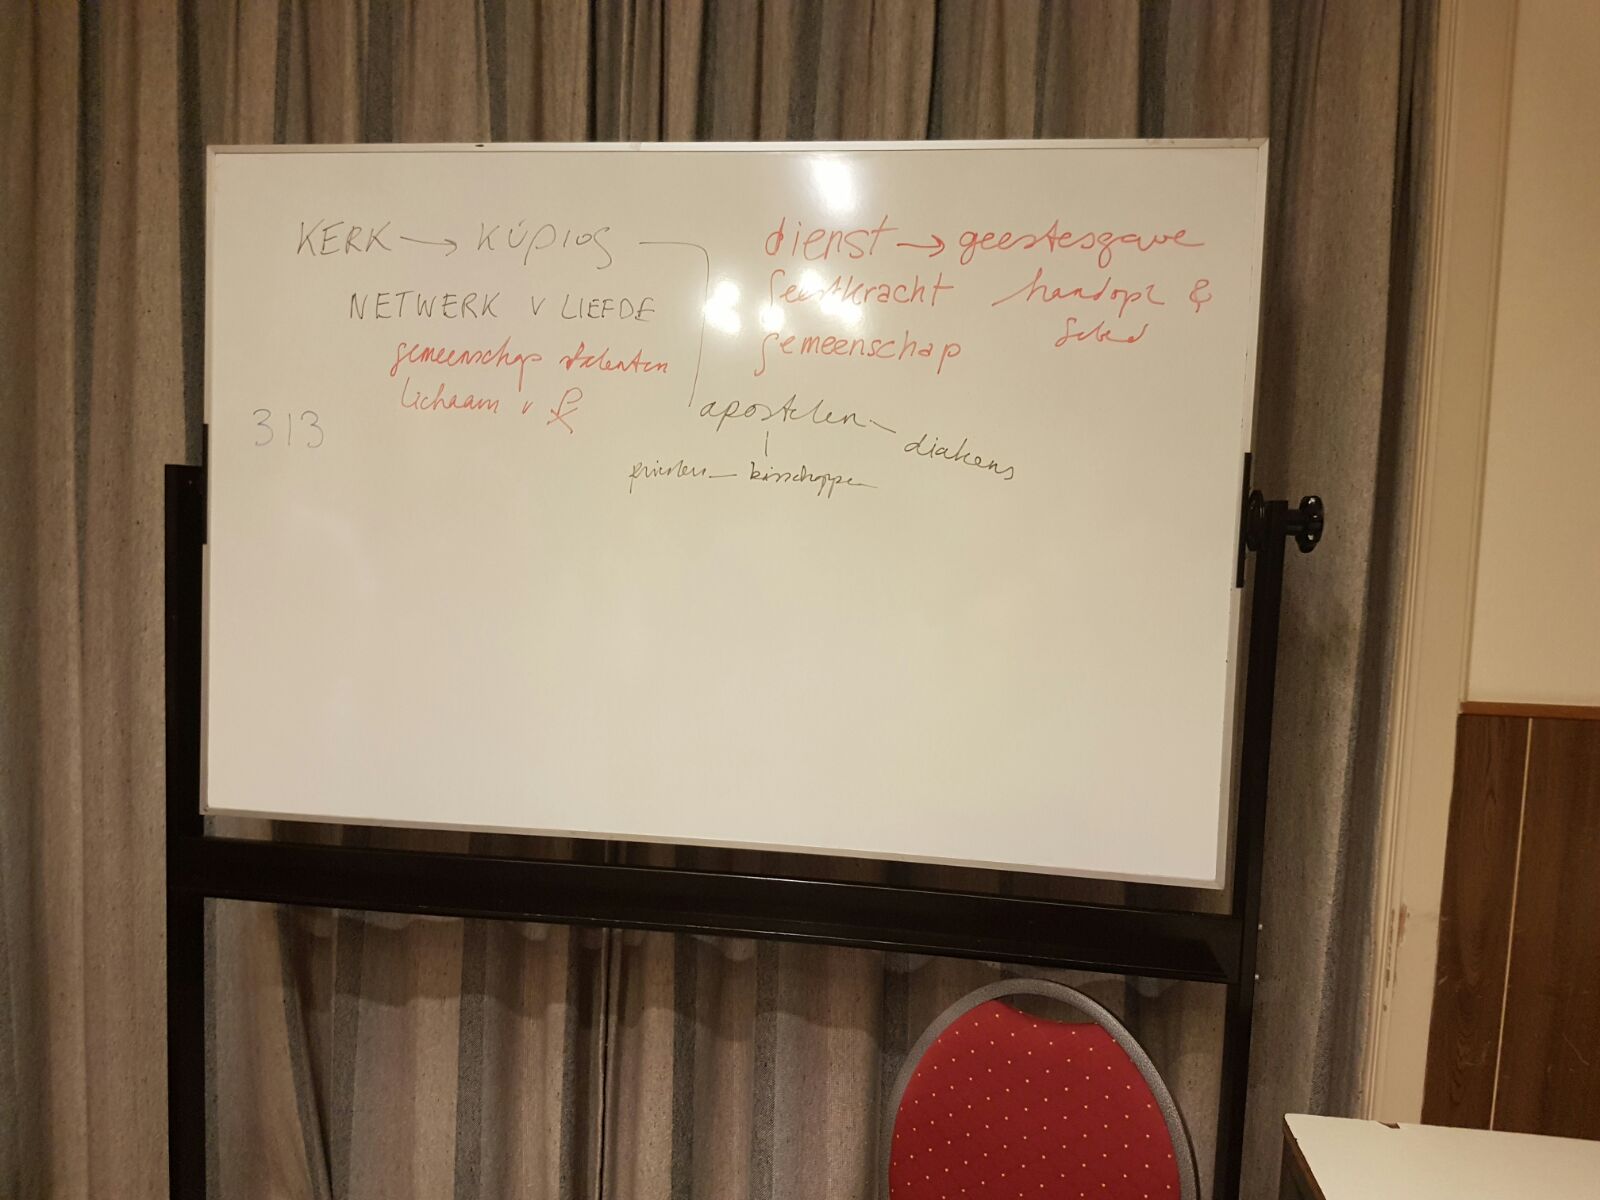 KERK → κύριος
NETWERK v LIEFDE
gemeenschap talenten
lichaam v ☧
313
dienst → geestesgave
geestkracht handopl &
gemeenschap gebed
apostelen — diakens
priesters — bisschoppen